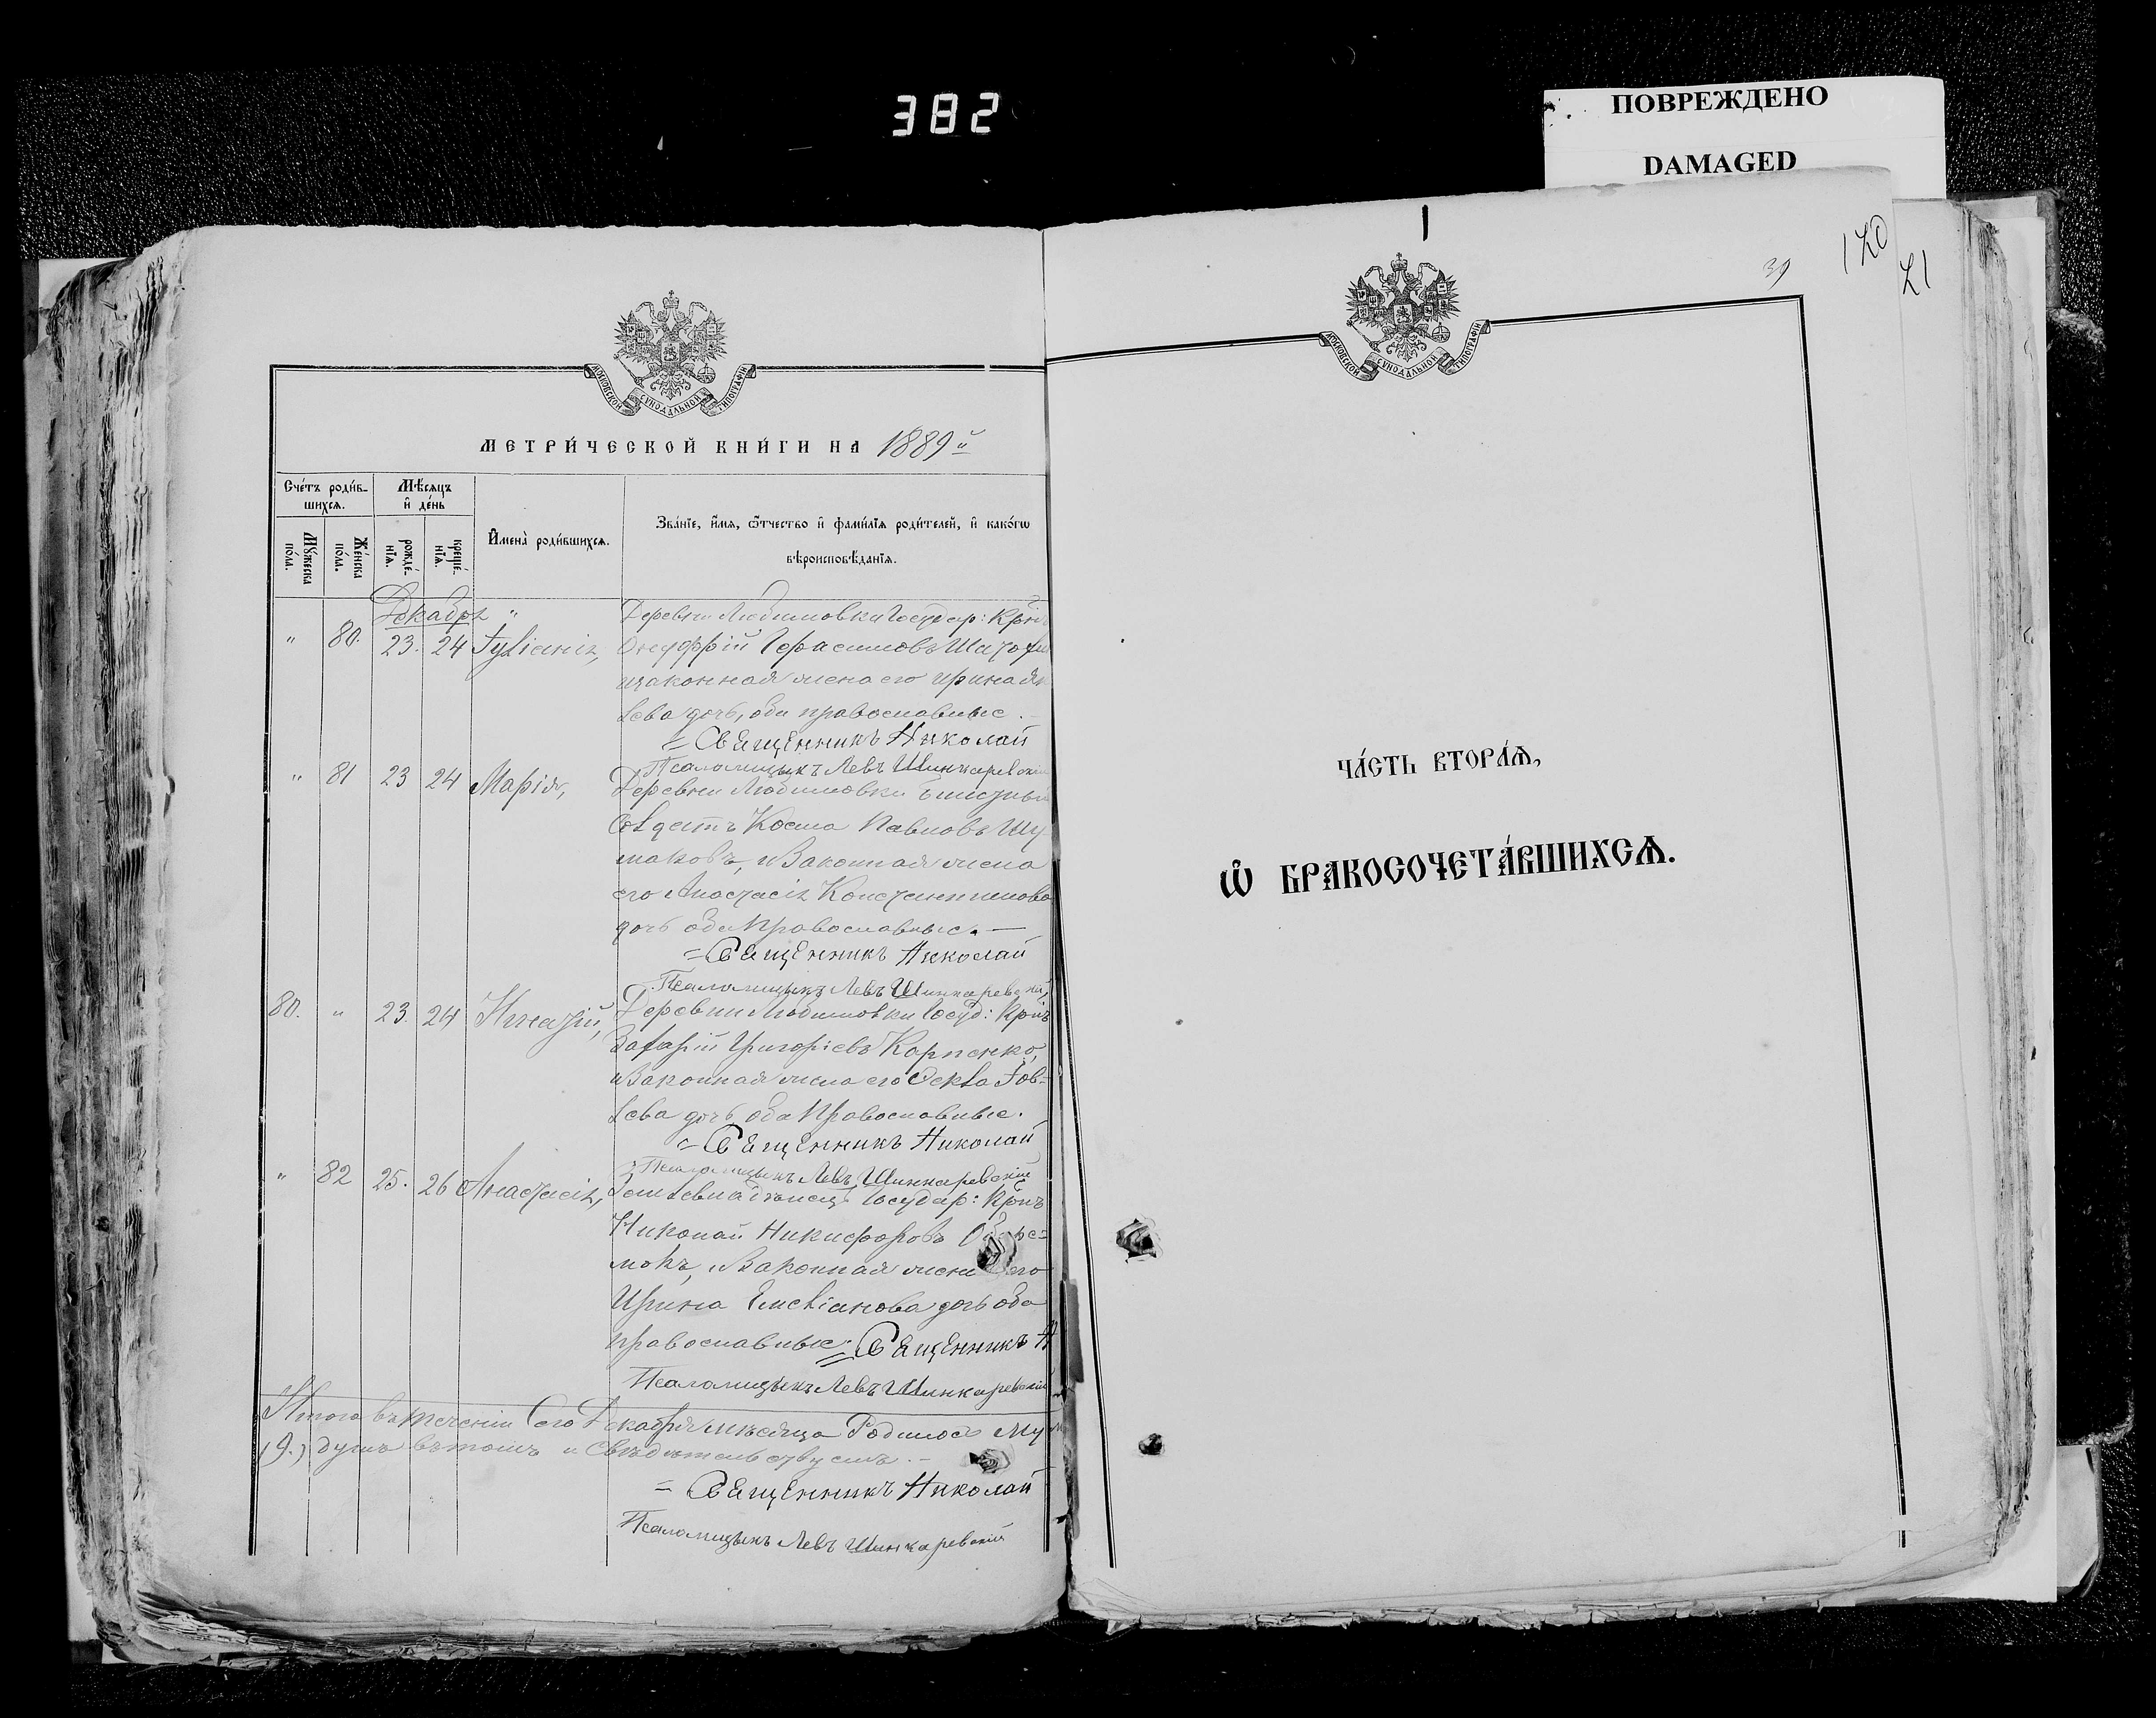 382
ПОВРЕЖДЕНО
DAMAGED
МОСКОВСКОЙ СѴНОДАЛЬНОЙ ТИПОГРАФІИ
МЕТРИ́ЧЕСКОЙ КНИ́ГИ НА 1889й
Сче́тъ роди́в-
шихсѧ.
Мѣ́сѧцъ
и҆ де́нь
И҆мена̀ роди́вшихсѧ.
Зва́нїе, и҆́мѧ, ѻ҆́тчество и҆ фами́лїѧ роди́телей, и҆ како́гѡ
вѣроисповѣ́данїѧ.
Мꙋ́жеска
по́ла.
Же́нска
по́ла.
рожде́-
нїѧ.
креще́-
нїѧ.
Декабрь "
Деревни Любимовки Государ: Кр
" 80. 23. 24 Іуліанія,
Онуфрій Герасимовъ
и законная жена его Ирина
лева дочь, оба православные.
= Священникъ Николай
Псаломщикъ Левъ Шинкаревскій
" 81 23 24 Марія,
Деревни Любимовки
Солдатъ Косма Павловъ Шу-
маковъ, и Законная жена
его Анастасія Константинова
дочь оба Православные. —
= Священникъ Николай
Псаломщикъ Левъ Шинкаревскій
80. " 23. 24 Игнатій,
Деревни Любимовки Госуд: Крнъ
Захарій Григоріевъ Карпенко,
и Законная жена его Ѳекла Іов-
лева дочь оба Православные.
= Священникъ Николай
Псаломщикъ Левъ Шинкаревскій
" 82 25. 26 Анастасія,
Государ: Крнъ
Николай Никифоровъ
и Законная жена его
Ирина Емеліанова дочь оба
православные. = Священникъ Н
Псаломщикъ Левъ Шинкаревскій
Итого въ теченіи Сего Декабря мѣсяца Родилось Му
(9.) душъ въ томъ и Свѣдѣтельствуемъ. —
= Священникъ Николай
Псаломщикъ Левъ Шинкаревскій
39
120
21
МОСКОВСКОЙ СѴНОДАЛЬНОЙ ТИПОГРАФІИ
ЧА́СТЬ ВТОРА́Ѧ,
Ѡ҆ БРАКОСОЧЕТА́ВШИХСѦ.